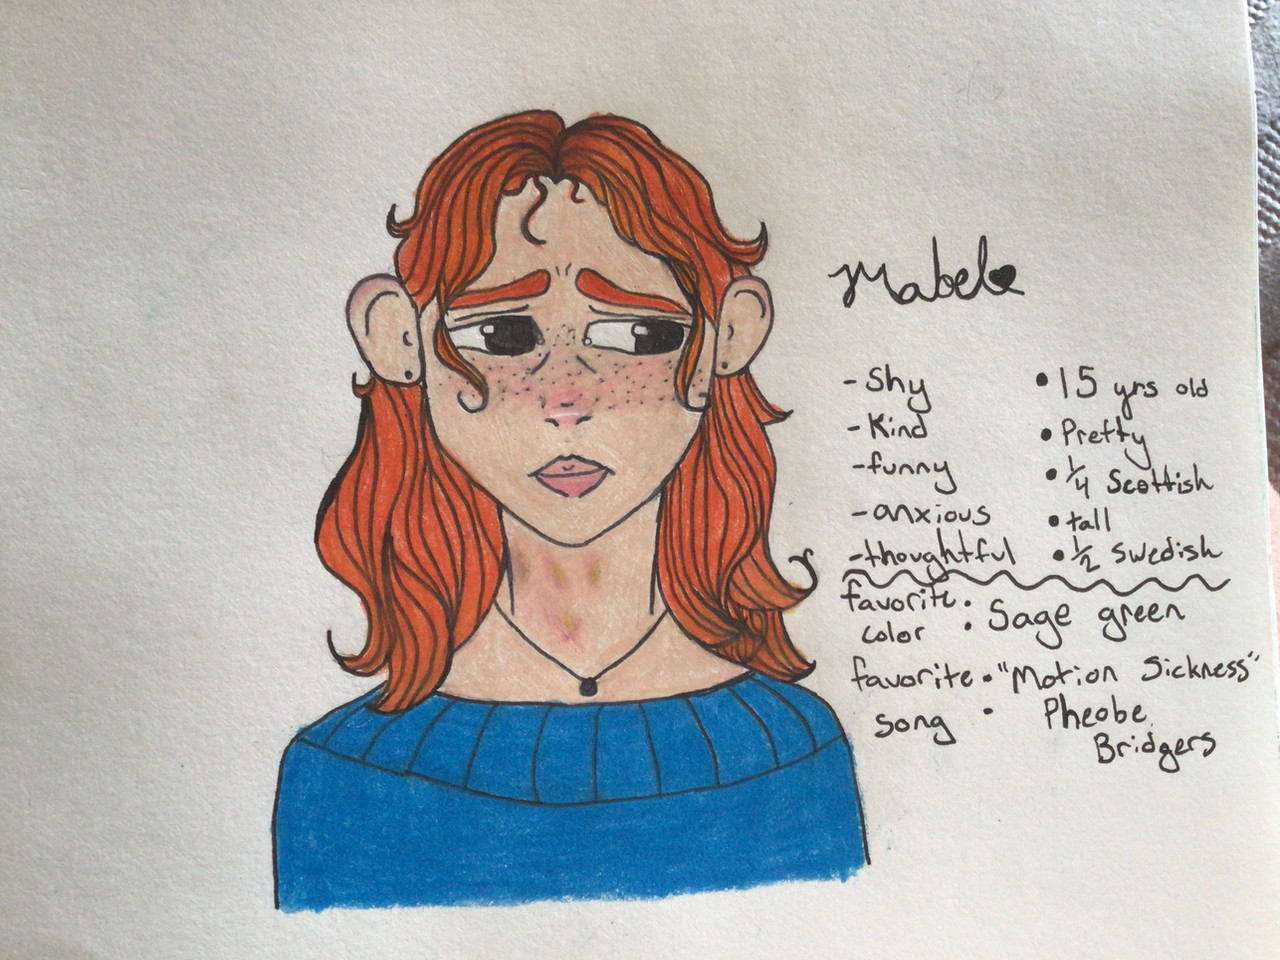 Mabel
-Shy
-Kind
-funny
-anxious
-thoughtful
•15 yrs old
•Pretty
•1/4 Scottish
•tall
•1/2 Swedish
favorite color : Sage green
favorite song : "Motion Sickness"
Pheobe
Bridgers